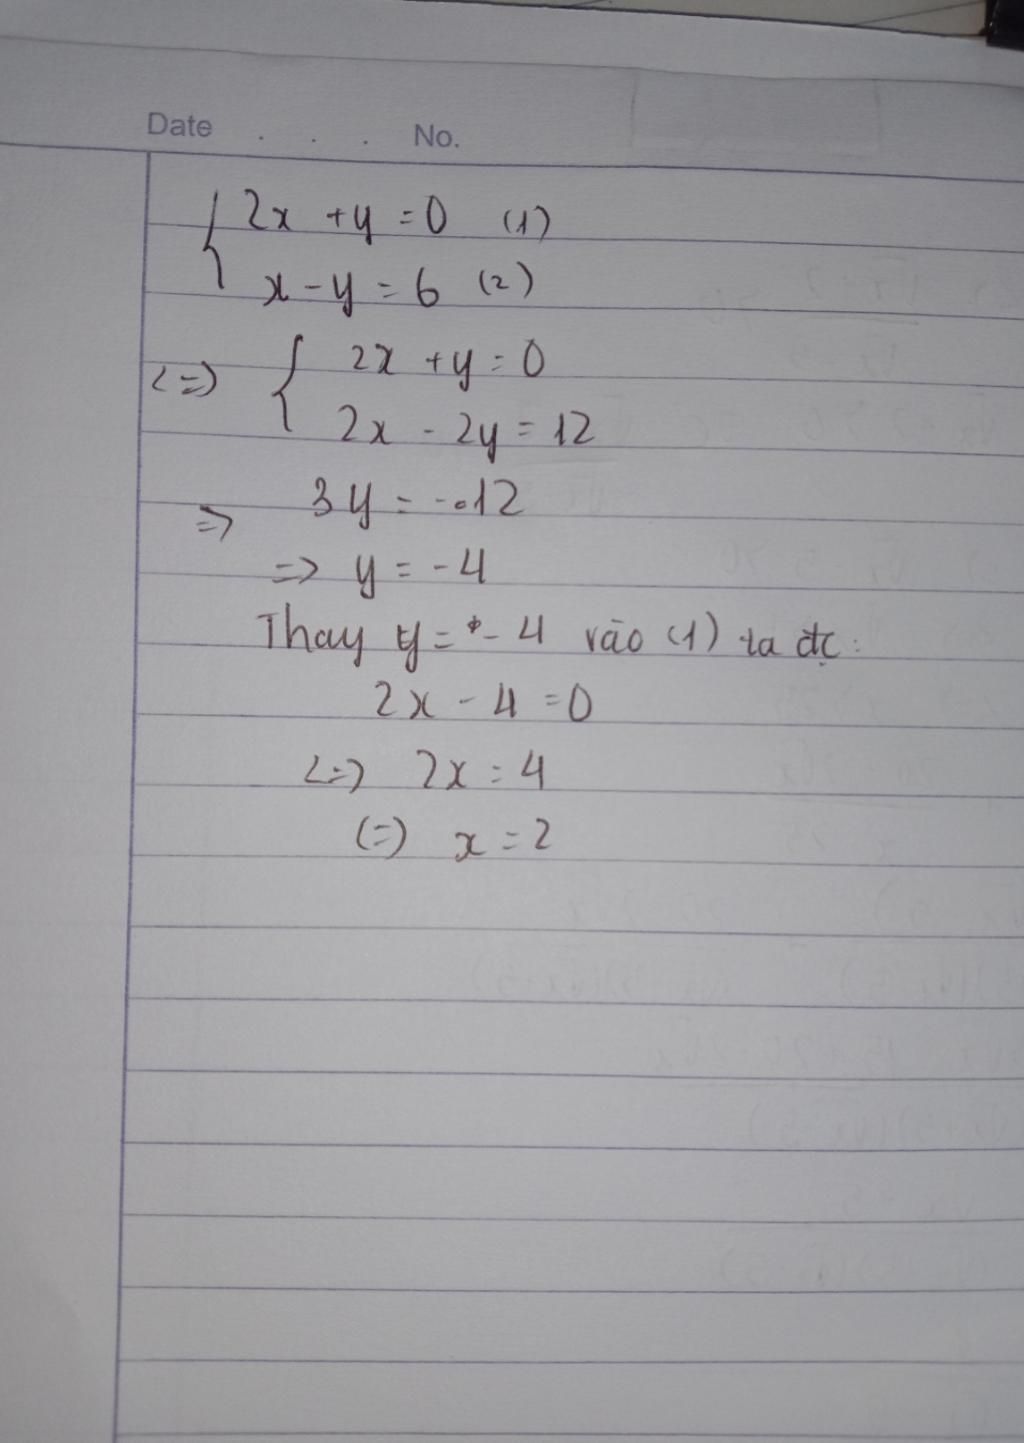 Date . . . No.
2x + y = 0 (1)
x - y = 6 (2)
<=> { 2x + y = 0
2x - 2y = 12
=> 3y = -12
=> y = -4
Thay y = -4 vào (1) ta đc:
2x - 4 = 0
<=> 2x = 4
(=) x = 2